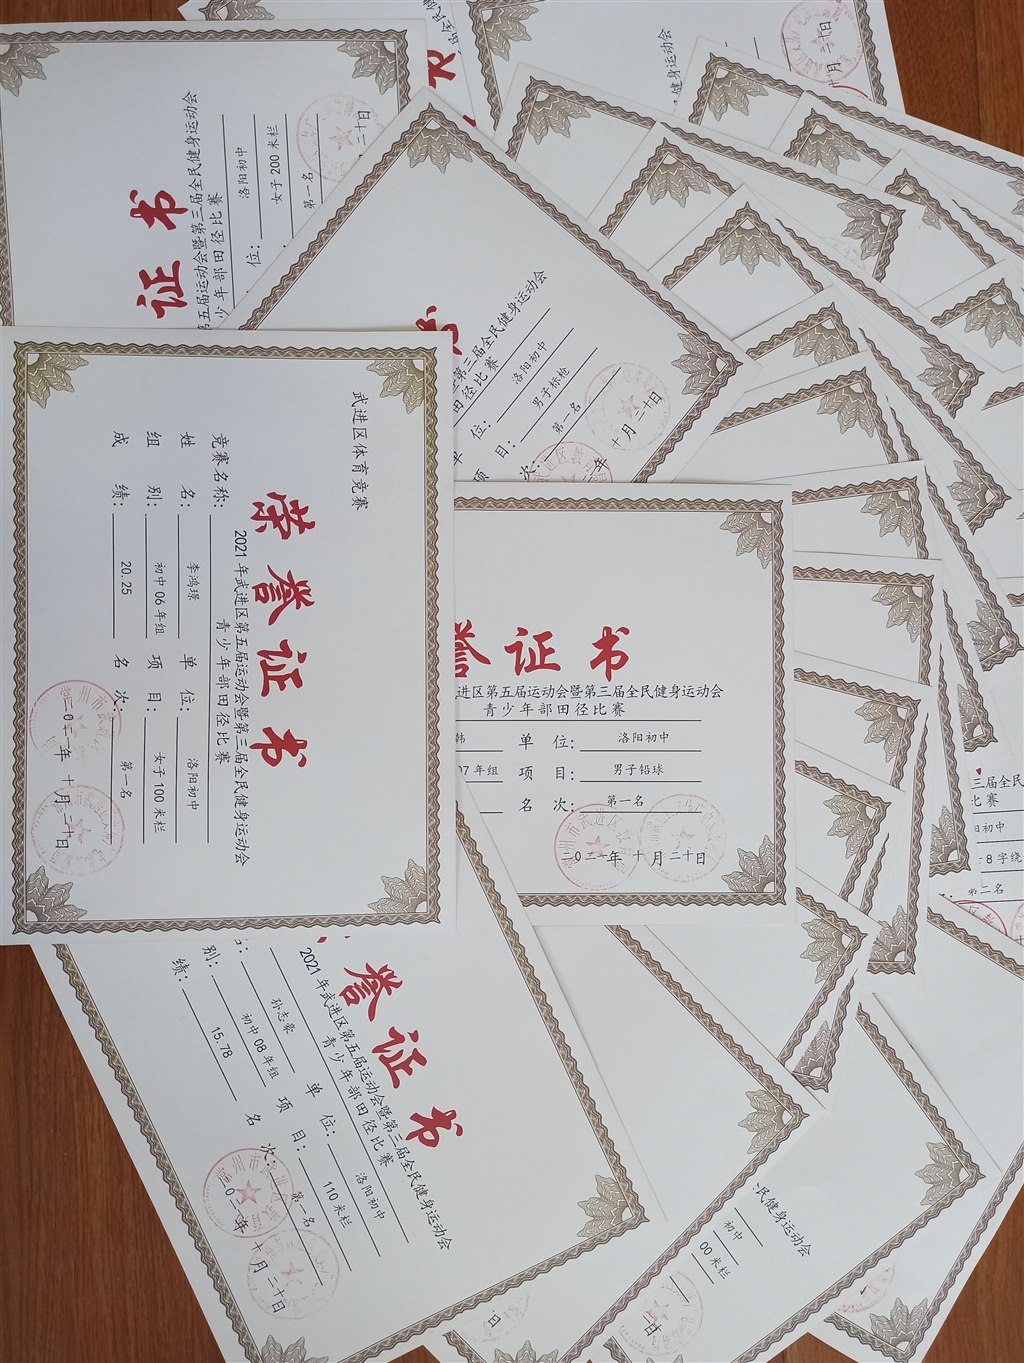 武进区体育竞赛
荣誉证书
竞赛名称: 2021年武进区第五届运动会暨第三届全民健身运动会
青少年部田径比赛
姓名: 李鸿璟 单位: 洛阳初中
组别: 初中06年组 项目: 女子100米栏
成绩: 20.25 名次: 第一名
二〇二一年十月二十日
证书
第五届运动会暨第三届全民健身运动会
青少年部田径比赛
位: 洛阳初中
女子200米栏
第一名
二十日
书
第三届全民健身运动会
田径比赛
单位: 洛阳初中
项目: 男子标枪
次: 第一名
年十月二十日
誉证书
进区第五届运动会暨第三届全民健身运动会
青少年部田径比赛
韩 单位: 洛阳初中
07年组 项目: 男子铅球
名次: 第一名
二〇二一年十月二十日
誉证书
2021年武进区第五届运动会暨第三届全民健身运动会
青少年部田径比赛
孙志豪 单位: 洛阳初中
别: 初中08年组 项目: 110米栏
绩: 15.78 名次: 第一名
二〇二一年十月二十日
民健身运动会
初中
00米栏
日
三届全民
比赛
初中
8字绕
第二名
健身运动会
月二十日